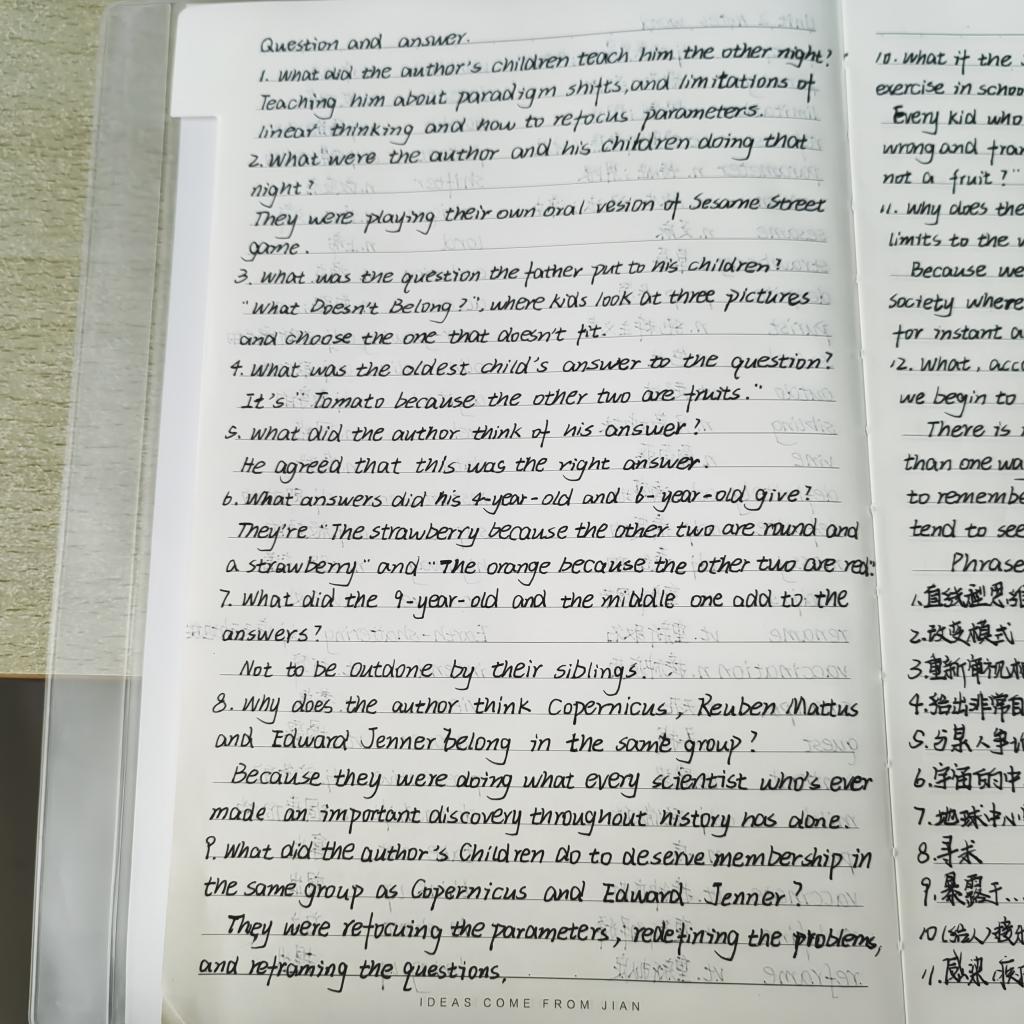 Question and answer.
1. What did the author's children teach him the other night?
Teaching him about paradigm shifts, and limitations of
linear thinking and how to refocus parameters.
2. What were the author and his children doing that
night?
They were playing their own oral vesion of Sesame Street
game.
3. What was the question the father put to his children?
"What Doesn't Belong?", where kids look at three pictures
and choose the one that doesn't fit.
4. What was the oldest child's answer to the question?
It's "Tomato because the other two are fruits."
5. What did the author think of his answer?
He agreed that this was the right answer.
6. What answers did his 4-year-old and 6-year-old give?
They're "The strawberry because the other two are round and
a strawberry" and "The orange because the other two are red."
7. What did the 9-year-old and the middle one add to the
answers?
Not to be outdone by their siblings.
8. Why does the author think Copernicus, Reuben Mattus
and Edward Jenner belong in the same group?
Because they were doing what every scientist who's ever
made an important discovery throughout history has done.
9. What did the author's Children do to deserve membership in
the same group as Copernicus and Edward Jenner?
They were refocuing the parameters, redefining the problems,
and reframing the questions.
IDEAS COME FROM JIAN
10. What if the
exercise in schoo
Every kid who
wrong and fra
not a fruit?"
11. Why does the
limits to the
Because we
society where
for instant a
12. What, acc
we begin to
There is
than one wa
to remembe
tend to see
Phrase
1.直线型思维
2.改变模式
3.重新审视
4.给出非常
5.与某人争
6.宇宙的中
7.地球中心
8.寻求
9.暴露于...
10(给人)接
11.感染